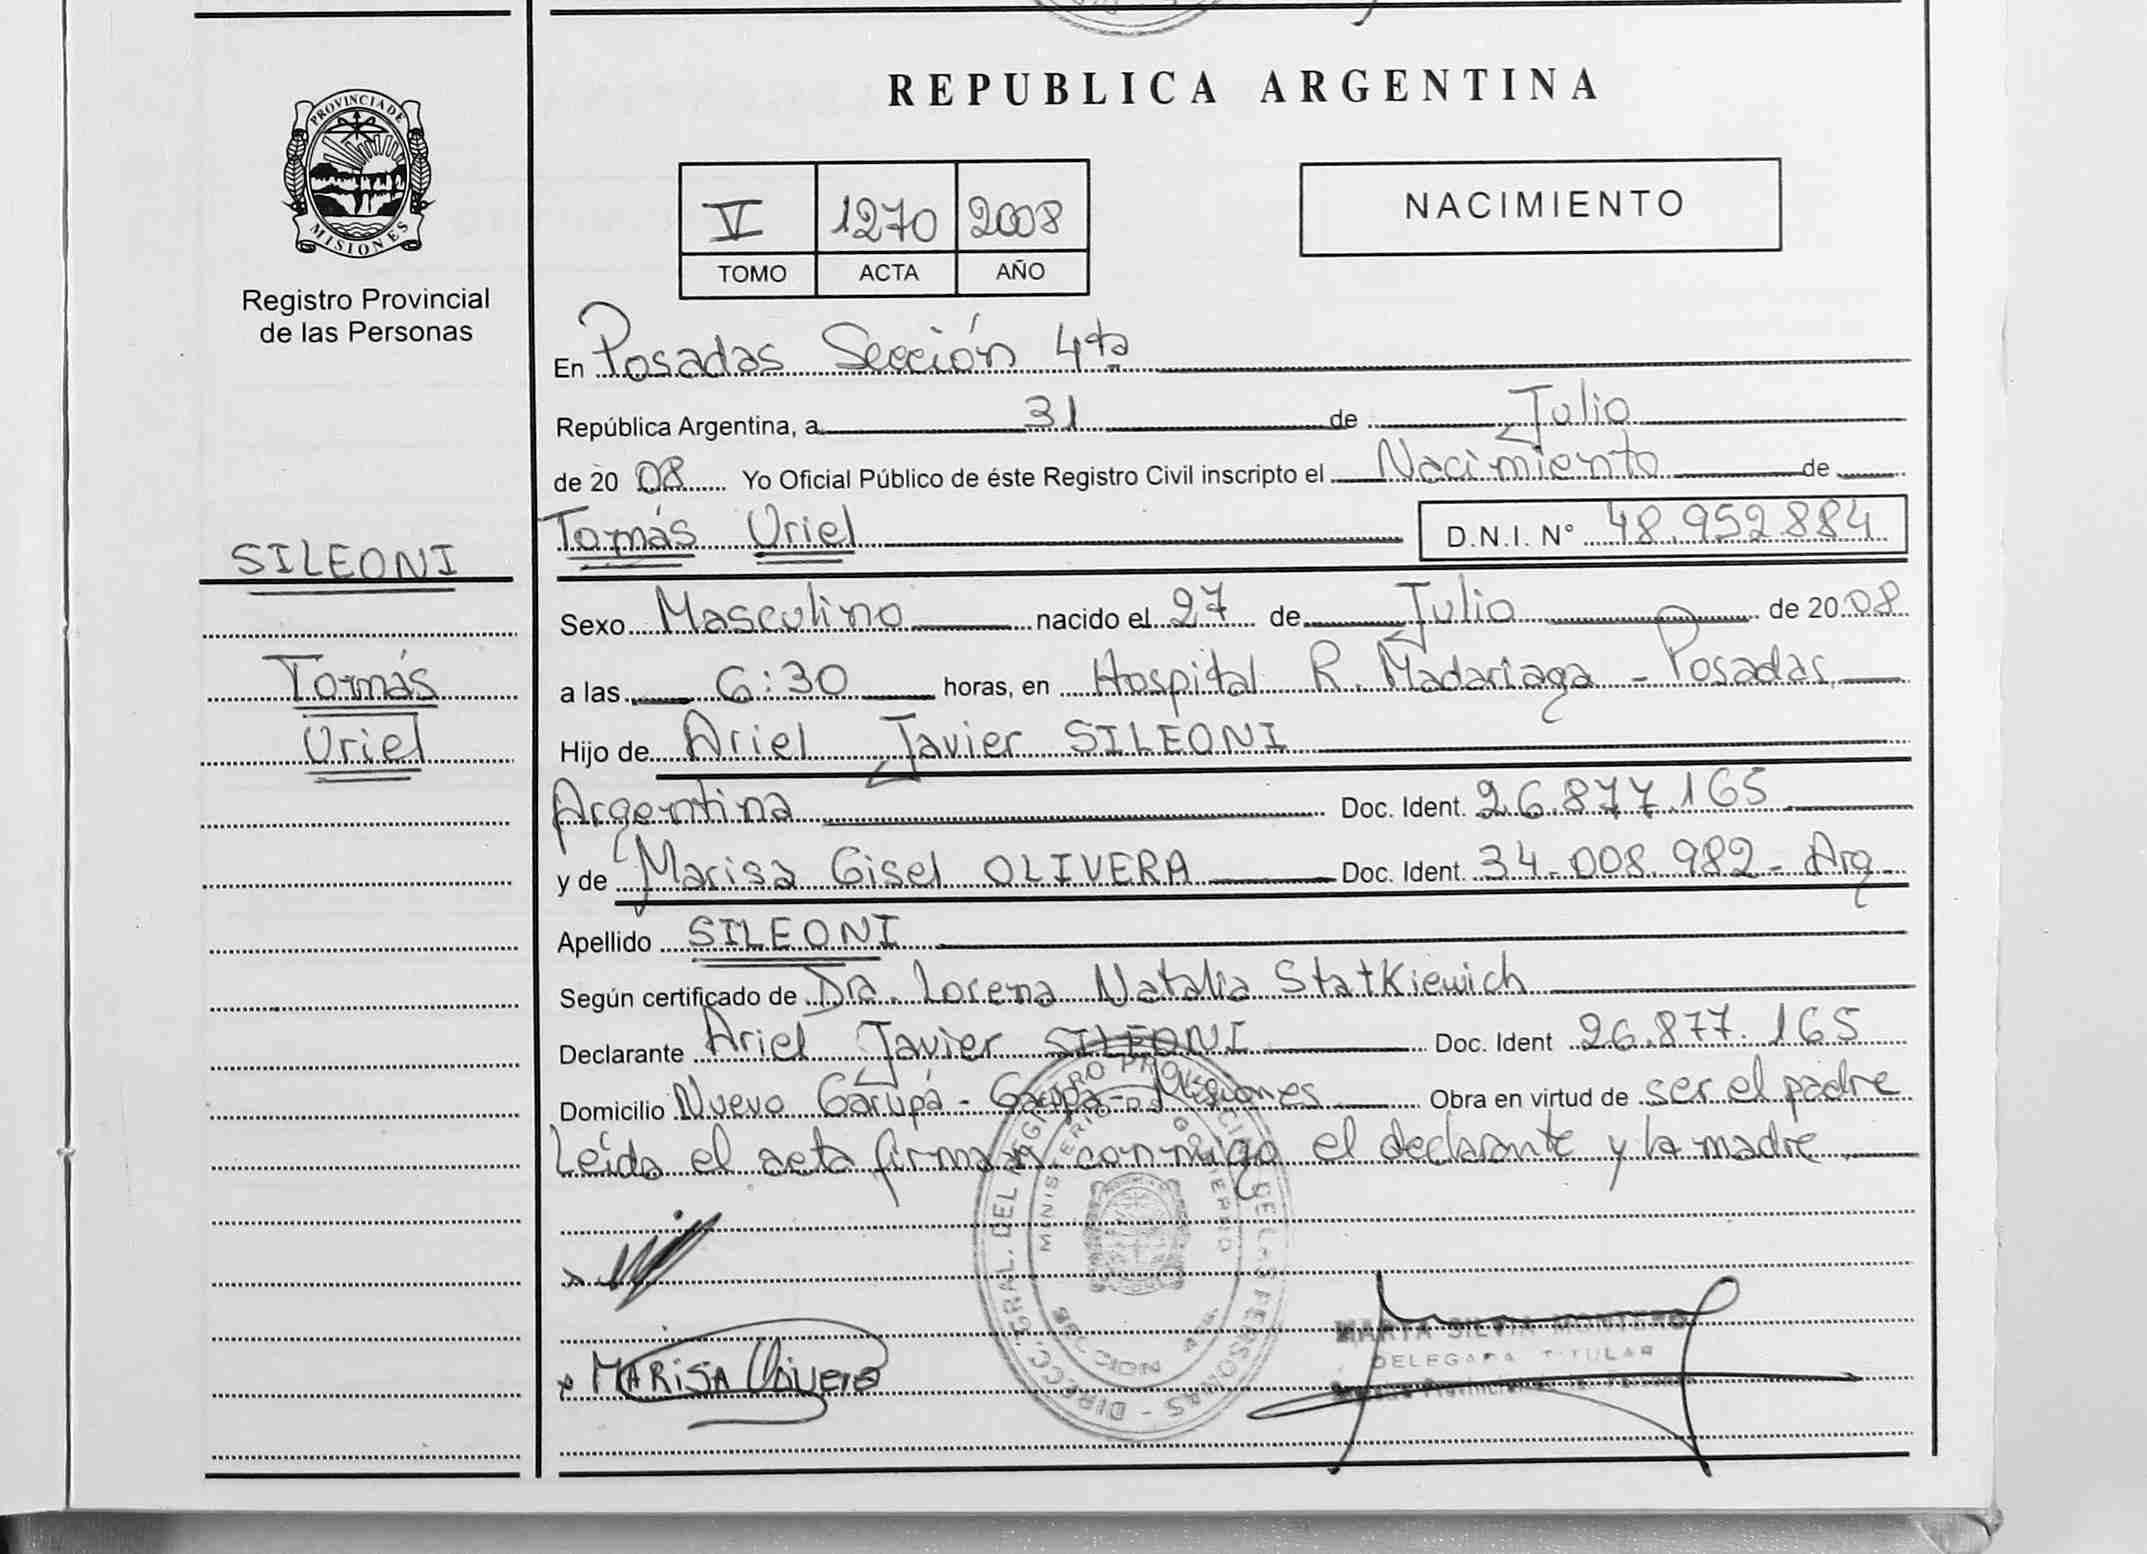 REPUBLICA ARGENTINA
PROVINCIA DE
MISIONES
Registro Provincial
de las Personas
V 1270 2008
TOMO ACTA AÑO
NACIMIENTO
En Posadas Sección 4ta
República Argentina, a 31 de Julio
de 2008 Yo Oficial Público de éste Registro Civil inscripto el Nacimiento de
Tomás Uriel D.N.I. N° 48.952.884
SILEONI
Tomás
Uriel
Sexo Masculino nacido el 27 de Julio de 2008
a las 6:30 horas, en Hospital R. Madariaga - Posadas
Hijo de Ariel Javier SILEONI
Argentina Doc. Ident. 26.877.165
y de Marisa Gisel OLIVERA Doc. Ident. 34.008.982 - Arg.
Apellido SILEONI
Según certificado de Dra. Lorena Natalia StatKiewich
Declarante Ariel Javier SILEONI Doc. Ident 26.877.165
Domicilio Nuevo Garupá - Garupá - Misiones Obra en virtud de ser el padre
Leída el acta firman conmigo el declarante y la madre
DIRECC. GRAL. DEL REGISTRO PROVINCIAL DE LAS PERSONAS
MINISTERIO DE GOBIERNO
MARISA Olivera
MARTA SILVIA MONTERO
DELEGADA TITULAR